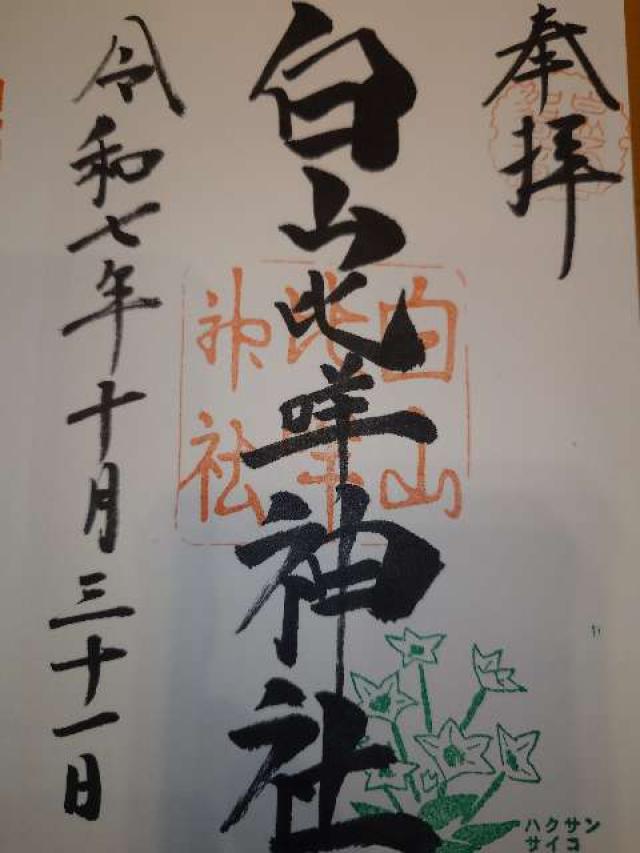 奉拝
白山比咩神社
令和七年十月三十一日
白山
比咩
神社
ハクサン
サイコ